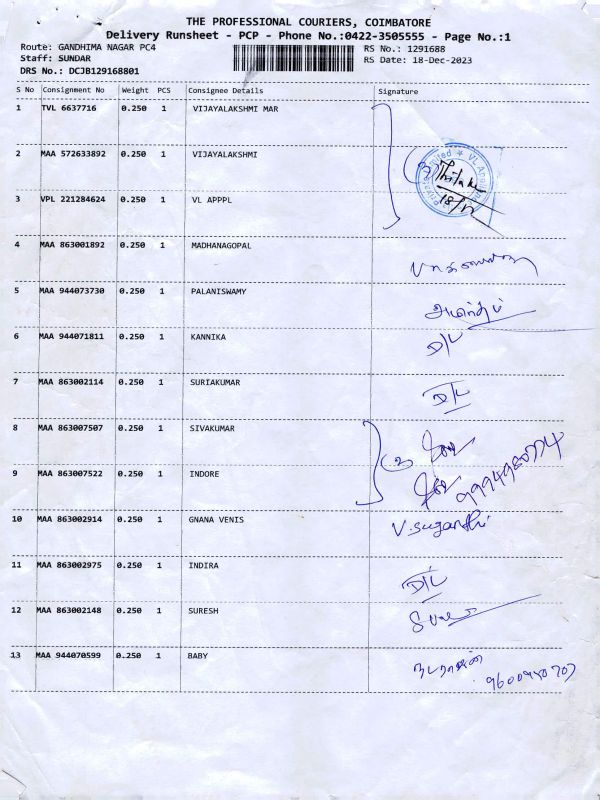 THE PROFESSIONAL COURIERS, COIMBATORE
Delivery Runsheet - PCP - Phone No.:0422-3505555 - Page No.:1
Route: GANDHIMA NAGAR PC4 RS No.: 1291688
Staff: SUNDAR RS Date: 18-Dec-2023
DRS No.: DCJB129168801
S No Consignment No Weight PCS Consignee Details Signature
1 TVL 6637716 0.250 1 VIJAYALAKSHMI MAR
2 MAA 572633892 0.250 1 VIJAYALAKSHMI
18/12
3 VPL 221284624 0.250 1 VL APPPL
4 MAA 863001892 0.250 1 MADHANAGOPAL
5 MAA 944073730 0.250 1 PALANISWAMY
6 MAA 944071811 0.250 1 KANNIKA D/L
7 MAA 863002114 0.250 1 SURIAKUMAR D/L
8 MAA 863007507 0.250 1 SIVAKUMAR
9 MAA 863007522 0.250 1 INDORE
10 MAA 863002914 0.250 1 GNANA VENIS V.Sugandhi
11 MAA 863002975 0.250 1 INDIRA D/L
12 MAA 863002148 0.250 1 SURESH
13 MAA 944070599 0.250 1 BABY